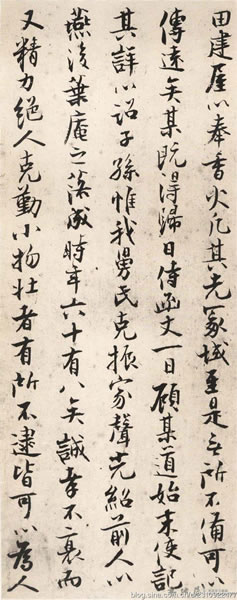 田建屋以奉香火凡其先冢域至是無所不備可以
傳遠矣某既得歸日侍函丈一日顧某道始末使記
其詳以詔子孫惟我舅氏克振家聲光紹前人以
燕後葉庵之落成時年六十有八矣誠幸不衰而
又精力絕人克勤小物壯者有所不逮皆可以為人